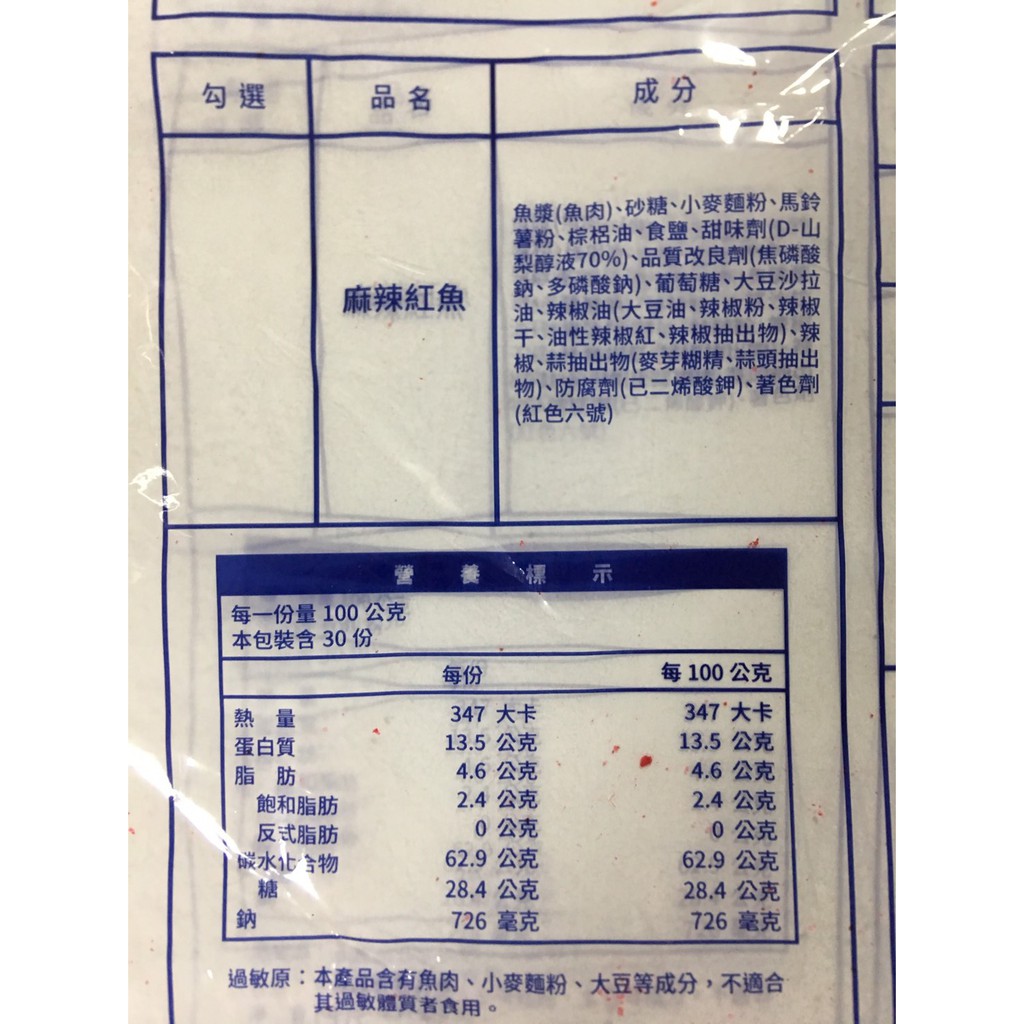 勾選 品名 成分
麻辣紅魚
魚漿(魚肉)、砂糖、小麥麵粉、馬鈴
薯粉、棕梠油、食鹽、甜味劑(D-山
梨醇液70%)、品質改良劑(焦磷酸
鈉、多磷酸鈉)、葡萄糖、大豆沙拉
油、辣椒油(大豆油、辣椒粉、辣椒
干、油性辣椒紅、辣椒抽出物)、辣
椒、蒜抽出物(麥芽糊精、蒜頭抽出
物)、防腐劑(已二烯酸鉀)、著色劑
(紅色六號)
營養標示
每一份量 100 公克
本包裝含 30 份
每份 每 100 公克
熱量 347 大卡 347 大卡
蛋白質 13.5 公克 13.5 公克
脂肪 4.6 公克 4.6 公克
飽和脂肪 2.4 公克 2.4 公克
反式脂肪 0 公克 0 公克
碳水化合物 62.9 公克 62.9 公克
糖 28.4 公克 28.4 公克
鈉 726 毫克 726 毫克
過敏原：本產品含有魚肉、小麥麵粉、大豆等成分，不適合
其過敏體質者食用。